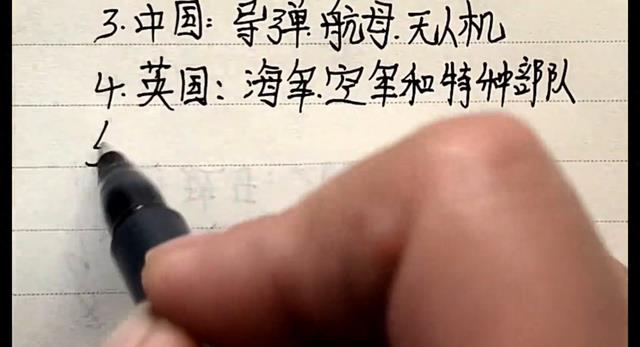 3.中国：导弹.航母.无人机
4.英国：海军.空军和特种部队
5